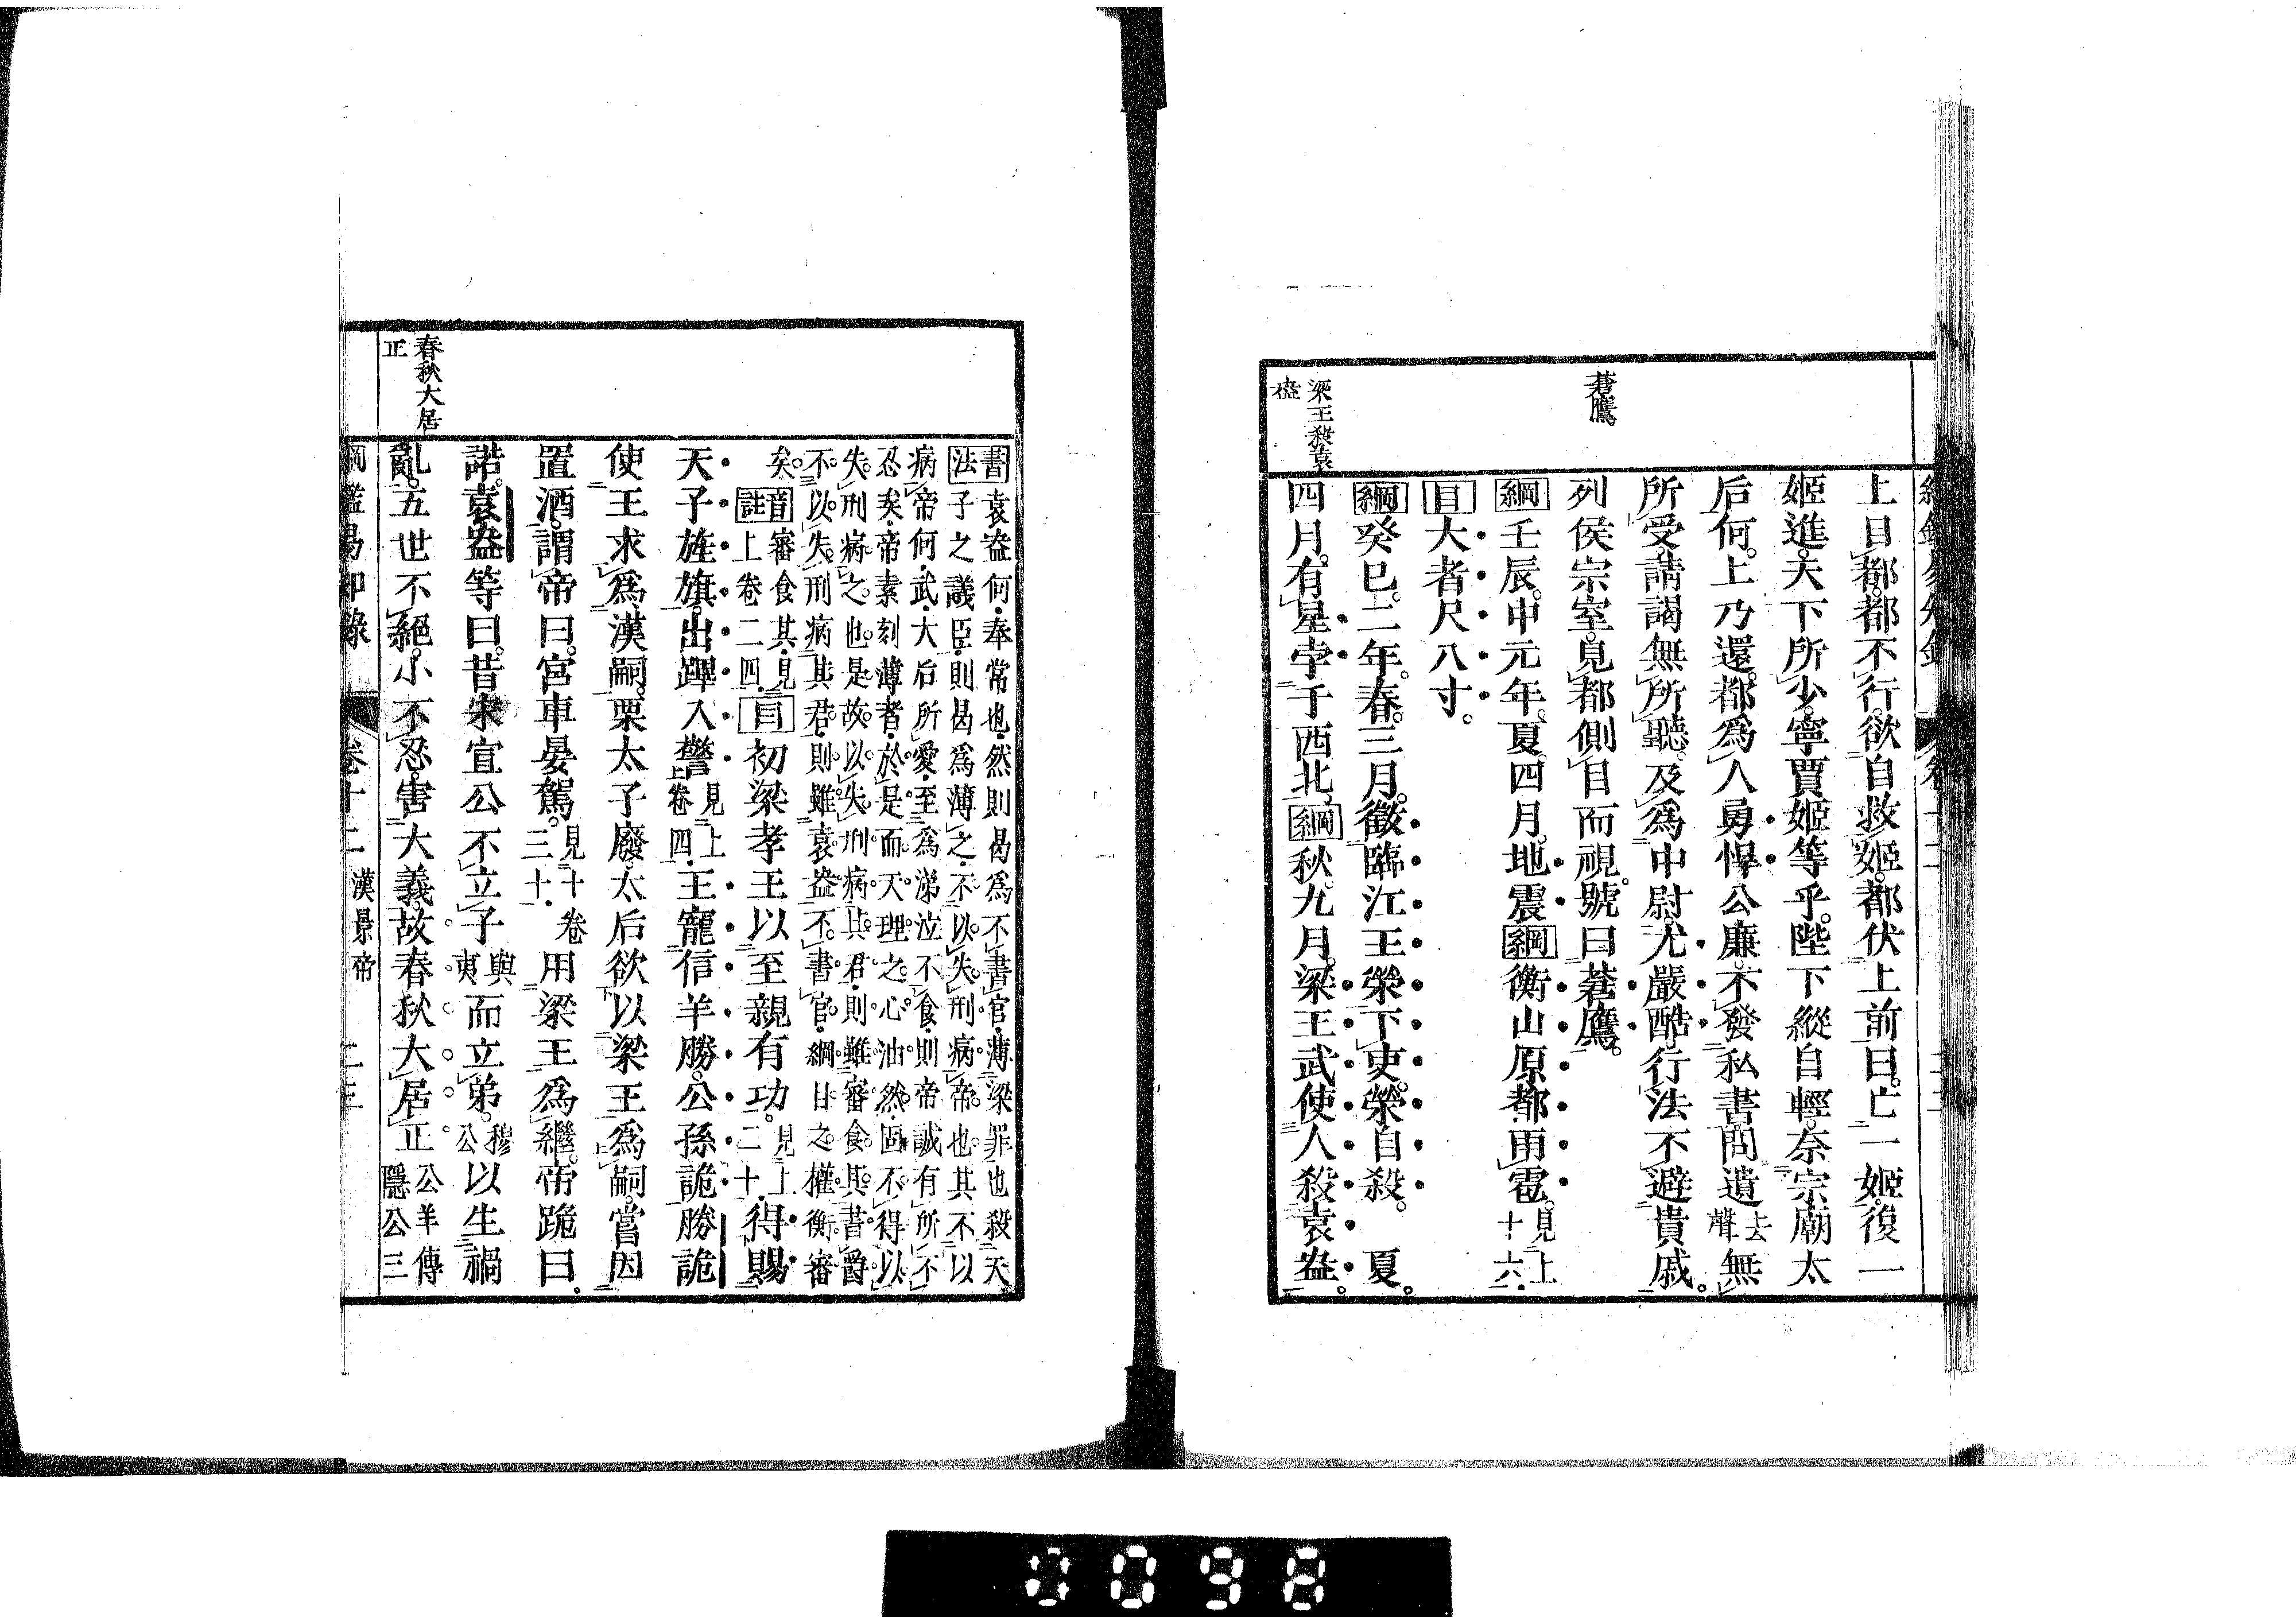 蒼鷹
梁王殺袁
盎
上目都。都不行。欲自救姬。都伏上前曰。亡一姬。復一
姬進。天下所少。寧賈姬等乎。陛下縱自輕。奈宗廟太
后何。上乃還。都爲人勇悍公廉。不發私書。問遺去聲無
所受。請謁無所聽。及爲中尉。尤嚴酷。行法不避貴戚。
列侯宗室。見都側目而視。號曰蒼鷹。
綱壬辰。中元年。夏。四月。地震綱衡山原都雨雹。見上十六
目大者尺八寸。
綱癸巳。二年。春。三月。徵臨江王榮下吏。榮自殺。夏。
四月。有星孛于西北。綱秋。九月。梁王武使人殺袁盎。
春秋大居
正
書法袁盎何。奉常也。然則曷爲不書官。薄梁罪也殺天
子之議臣。則曷爲薄之。不以失刑病帝也。其不以
病帝何。武。大后所愛。至爲涕泣不食。則帝誠有所不
忍矣。帝素刻薄者。於是而天理之心油然。固不得以
失刑病之也。是故以失刑病其君。則雖審食其書爵
不以失刑病其君。則雖袁盎不書官。綱目之權衡審
矣。音註審食其。見上卷二四。目初梁孝王以至親有功。見上二十。得賜
天子旌旗。出蹕入警。見上卷四。王寵信羊勝。公孫詭。勝詭
使王求爲漢嗣。栗太子廢。太后欲以梁王爲嗣。嘗因
置酒。謂帝曰。宮車晏駕。見十卷三十。用梁王爲繼。帝跪曰。
諾。袁盎等曰。昔宋宣公不立子與夷而立弟。穆公以生禍
亂。五世不絕。小不忍。害大義。故春秋大居正公羊傳隱公三
綱鑑易知錄 卷十二 漢景帝 二三
0098